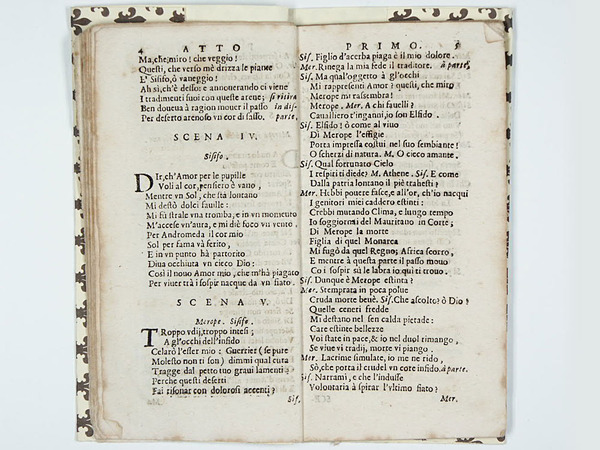 4 ATTO
Ma, che miro! che veggio!
Questi, che verso mè drizza le piante
E' Sisifo, ò vaneggio!
Ah sì, ch'è desso: e annonerando ci viene
I tradimenti suoi con queste arene; si ritira
Ben doueua à ragion mouer il passo in dis-
Per deserto arenoso vn cor di sasso. parte.
SCENA IV.
Sisifo.
Dir, ch'Amor per le pupille
Voli al cor, pensiero è vano,
Mentre vn Sol, che stà lontano
Mi destò dolci fauille:
Mi fù strale vna tromba, e in vn momento
M'accese vn'aura, e mi diè foco vn vento.
Per Andromeda il cor mio
Sol per fama và ferito,
E in vn punto hà partorito
Diua occhiuta vn cieco Dio:
Così il nouo Amor mio, che m'hà piagato
Per viuer trà i sospir nacque da vn fiato.
SCENA V.
Merope. Sisifo.
Troppo vdij, troppo intesi;
A gl'occhi dell'infido
Celarò l'esser mio: Guerrier (se pure
Molesto non ti son) dimmi qual cura
Tragge dal petto tuo graui lamenti?
Perche questi deserti
Fai risonar con dolorosi accenti?
Sis.
PRIMO. 5
Sis. Figlio d'acerba piaga è il mio dolore.
Mer. Rinega la mia fede il traditore. à parte.
Sis. Ma qual'oggetto à gl'occhi
Mi rappresenti Amor? questi, che miro
Merope mi rassembra!
Merope. Mer. A chi fauelli?
Caualliero t'inganni, io son Elfido.
Sis. Elfido! ò come al viuo
Di Merope l'effigie
Porta impressa costui nel suo sembiante!
O scherzi di natura. M. O cieco amante.
Sis. Qual fortunato Cielo
I respiri ti diede? M. Athene. Sis. E come
Dalla patria lontano il piè trahesti?
Mer. Hebbi pouere fasce, e all'or, ch'io nacqui
I genitori miei caddero estinti:
Crebbi mutando Clima, e lungo tempo
Io soggiornai del Mauritano in Corte;
Di Merope la morte
Figlia di quel Monarca
Mi fugò da quel Regno; Africa scorro,
E mentre à questa parte il passo mouo
Co i sospir sù le labra io qui ti trouo.
Sis. Dunque è Merope estinta?
Mer. Stemprata in poca polue
Cruda morte beuè. Sis. Che ascolto? ò Dio!
Quelle ceneri fredde
Mi destano nel sen calda pietade:
Care estinte bellezze
Voi state in pace, & io nel duol rimango,
Se viue vi tradij, morte vi piango.
Mer. Lacrime simulate, io me ne rido,
Sò, che porta il crudel vn core infido. à parte.
Sis. Narrami, e che l'indusse
Volontaria à spirar l'vltimo fiato?
Mer.